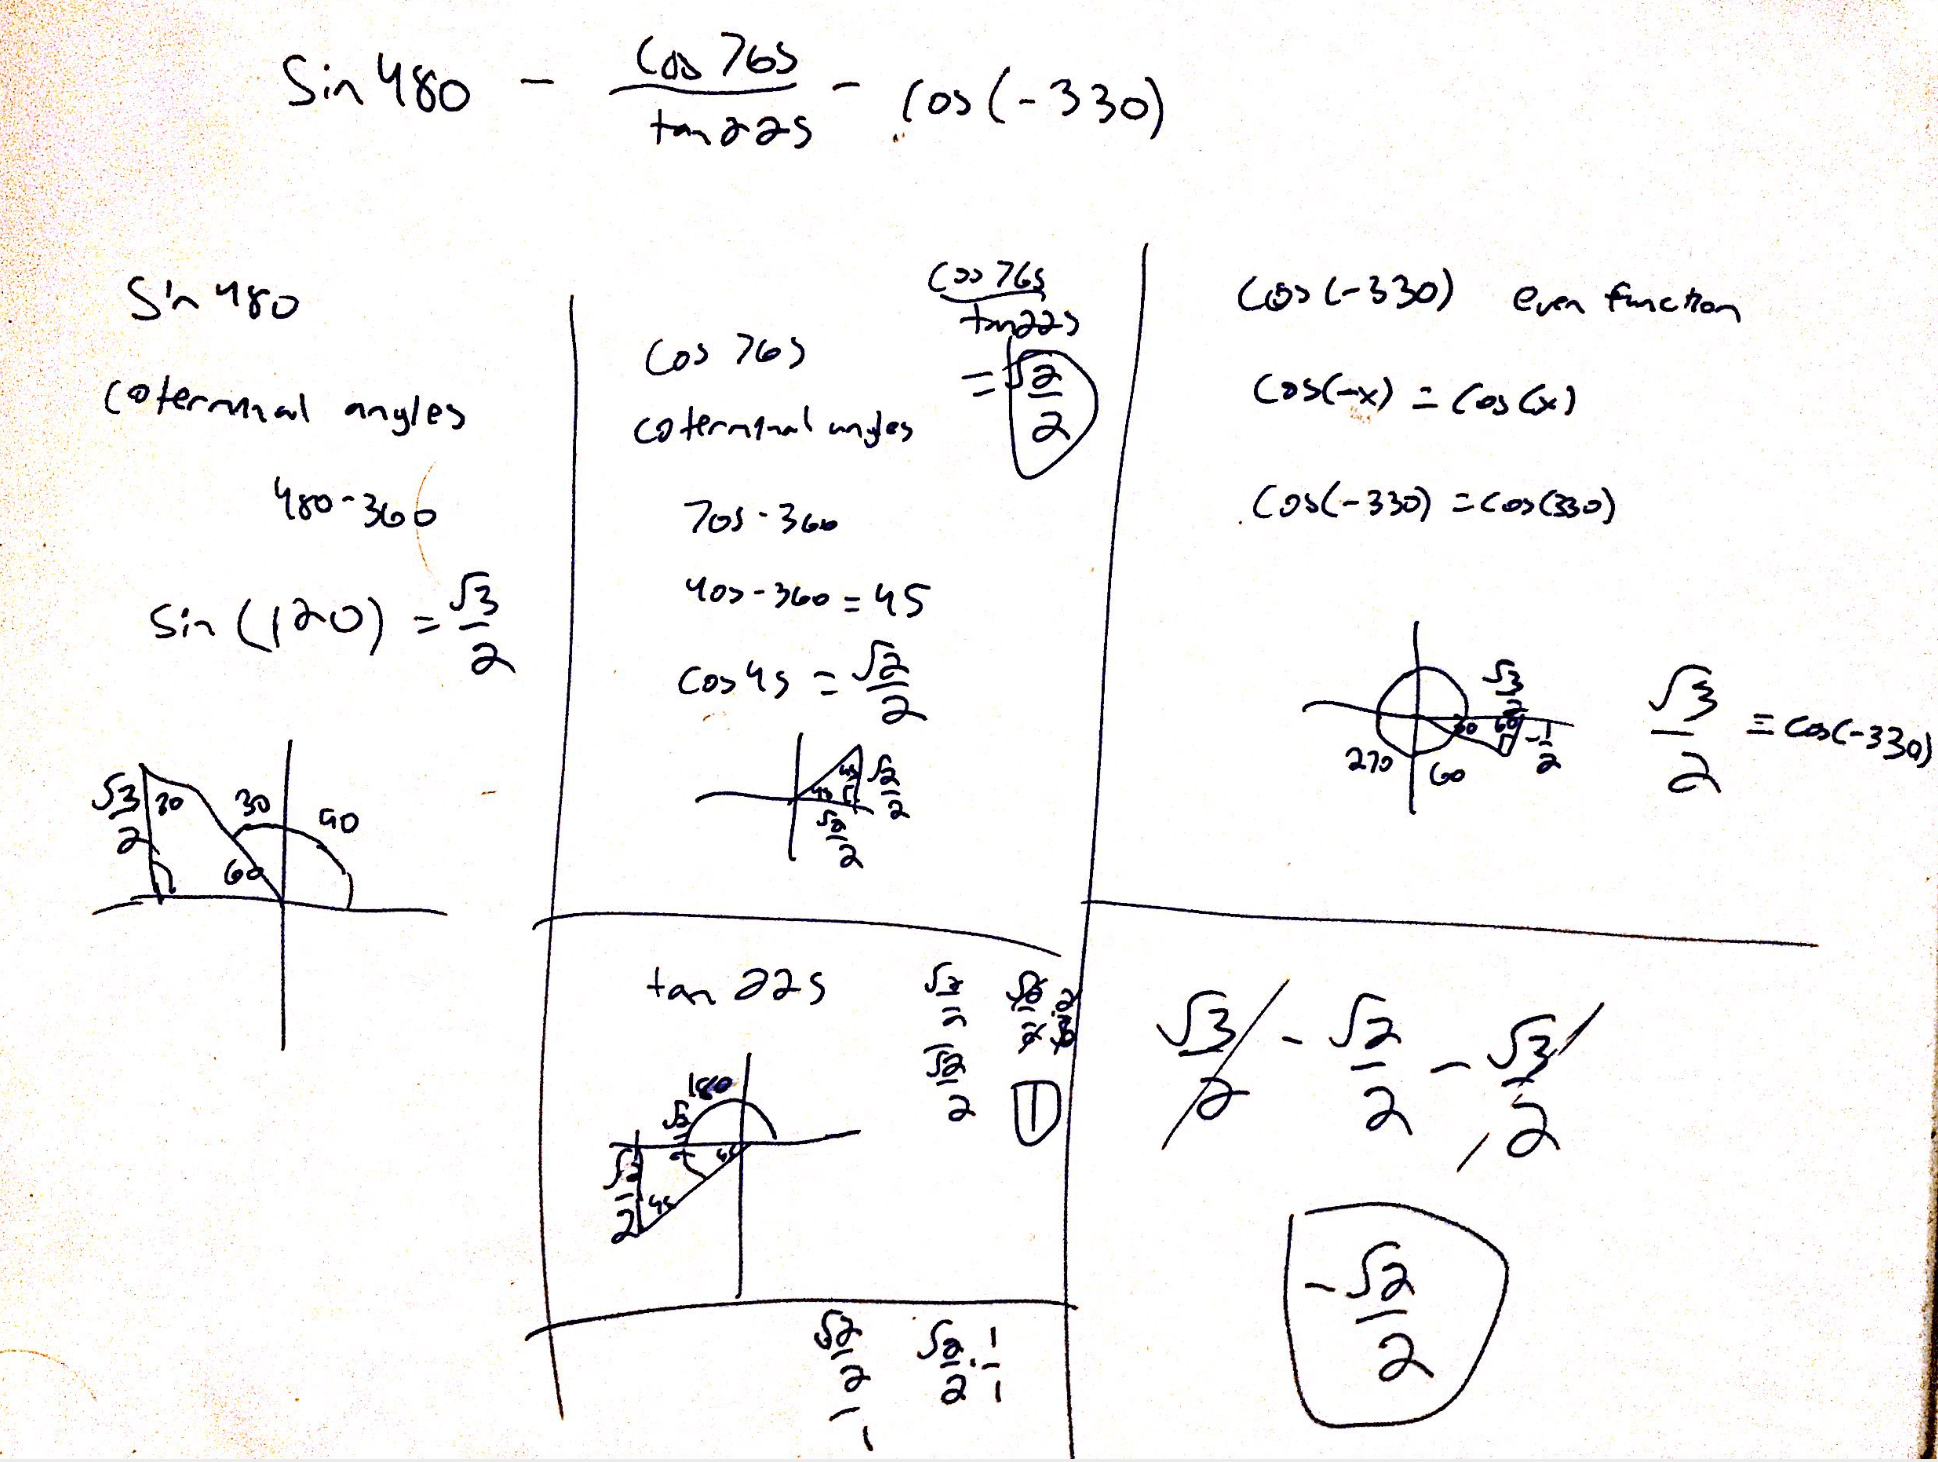 Sin 480 - cos 765 / tan 225 - cos(-330)
Sin 480
coterminal angles
480-360
Sin (120) = √3/2
√3/2 30 30 90
60
cos 765 / tan 225
= √2/2
cos 765
coterminal angles
705-360
405-360=45
cos 45 = √2/2
45 45 √2/2
√2/2
tan 225
180
√2/2
√2/2 45 45
√2/2 / √2/2
√2/2 · 2/√2
1
√2/2 / 1
√2/2 · 1/1
cos(-330) even function
cos(-x) = cos(x)
cos(-330) = cos(330)
√3/2
30 60 -1/2
270 60
√3/2 = cos(-330)
√3/2 - √2/2 - √3/2
-√2/2